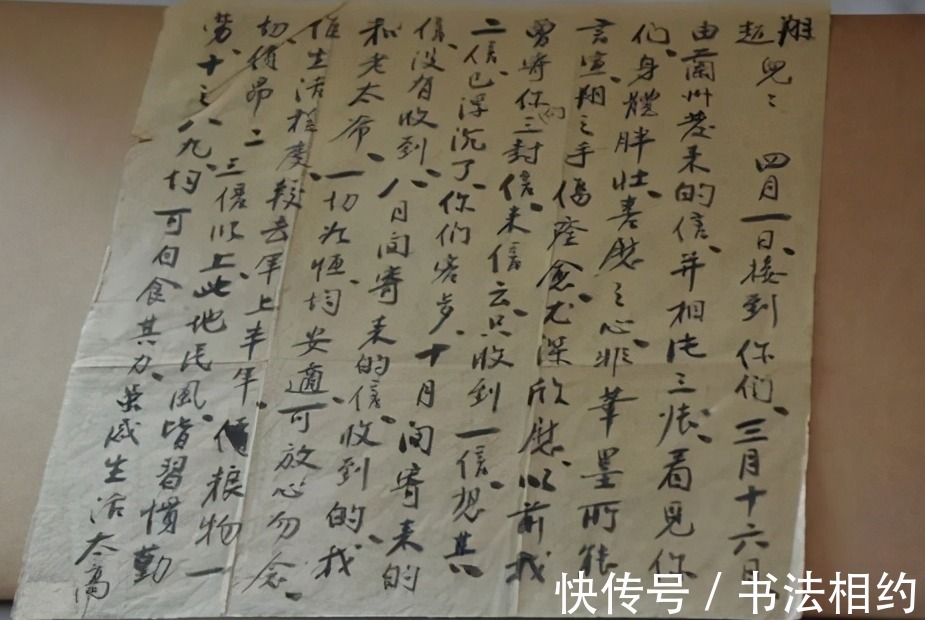 翔
超兒：四月一日、接到你们、三月十六日、
由蘭州发来的信、并相片三张、看见你
们、身體胖壮喜慰之心非筆墨所能
言宣、翔之手傷痊愈尤深欣慰、以前我
曾將你们三封信来信云、只收到一信、想其
二信已浮沉了、你们客岁、十月间寄来的
信、没有收到、八月间寄来的信、收到的、我
和老太爷、一切如恆均安適可放心勿念、
惟生活程度、較去年上半年、價粮物一
切价昂二三倍以上、此地民風、皆習慣勤
劳、十之八九、均可自食其力、荣感生活太高
快传号 / 书法相约